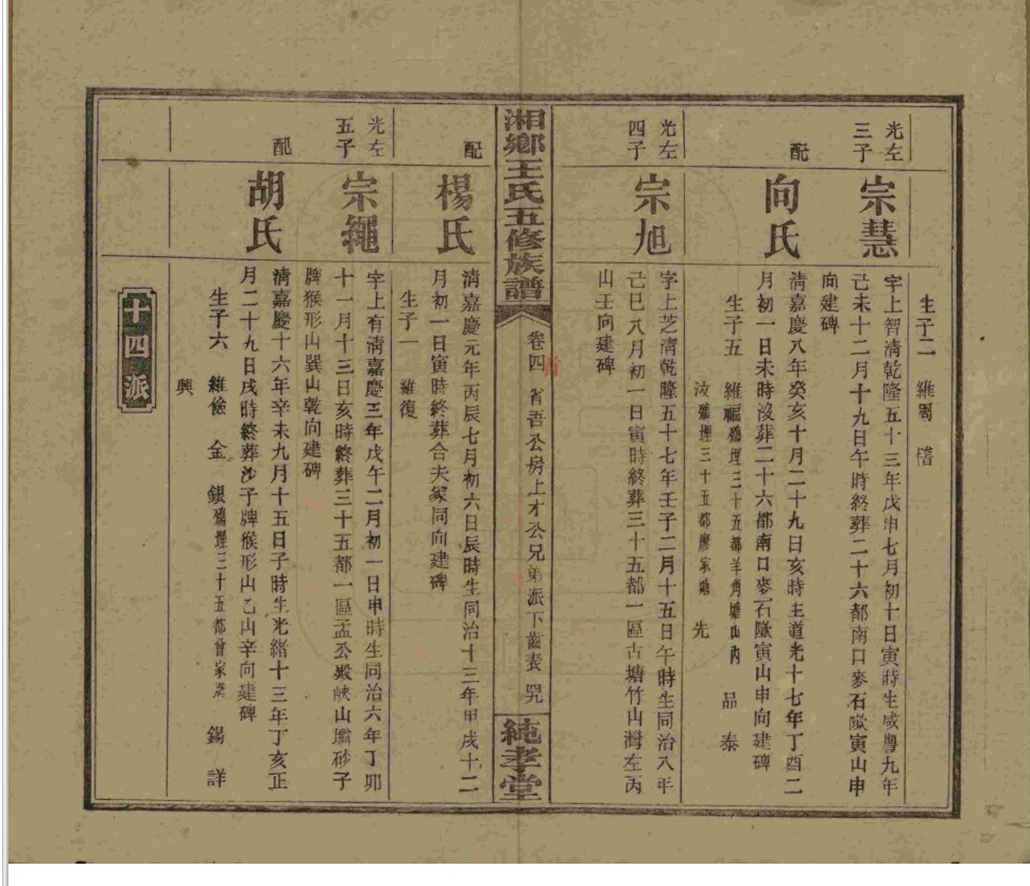 生子二 維周 㦣
光左三子
宗慧
字上智清乾隆五十三年戊申七月初十日寅時生咸豐九年
己未十二月十九日午時終葬二十六都南口麥石𡼭寅山申
向建碑
配
向氏
清嘉慶八年癸亥十月二十九日亥時生道光十七年丁酉二
月初一日未時沒葬二十六都南口麥石𡼭寅山申向建碑
生子五 維福殤埋三十五都羊角塘山內 品 泰
汝殤埋三十五都廖家 先
光左四子
宗旭
字上芝清乾隆五十七年壬子二月十五日午時生同治八年
己巳八月初一日寅時終葬三十五都一區古塘竹山灣左丙
山壬向建碑
湘鄉王氏五修族譜
卷四 省吾公房上才公兄弟派下齒表
純孝堂
配
楊氏
清嘉慶元年丙辰七月初六日辰時生同治十三年甲戌十二
月初一日寅時終葬合夫冢同向建碑
生子一 維復
光左五子
宗繩
字上有清嘉慶三年戊午二月初一日申時生同治六年丁卯
十一月十三日亥時終葬三十五都一區孟公殿峽山壩砂子
牌猴形山巽山乾向建碑
配
胡氏
清嘉慶十六年辛未九月十五日子時生光緒十三年丁亥正
月二十九日戌時終葬沙子牌猴形山乙山辛向建碑
生子六 維儉 金 銀殤埋三十五都曾家 錫 詳
興
十四派